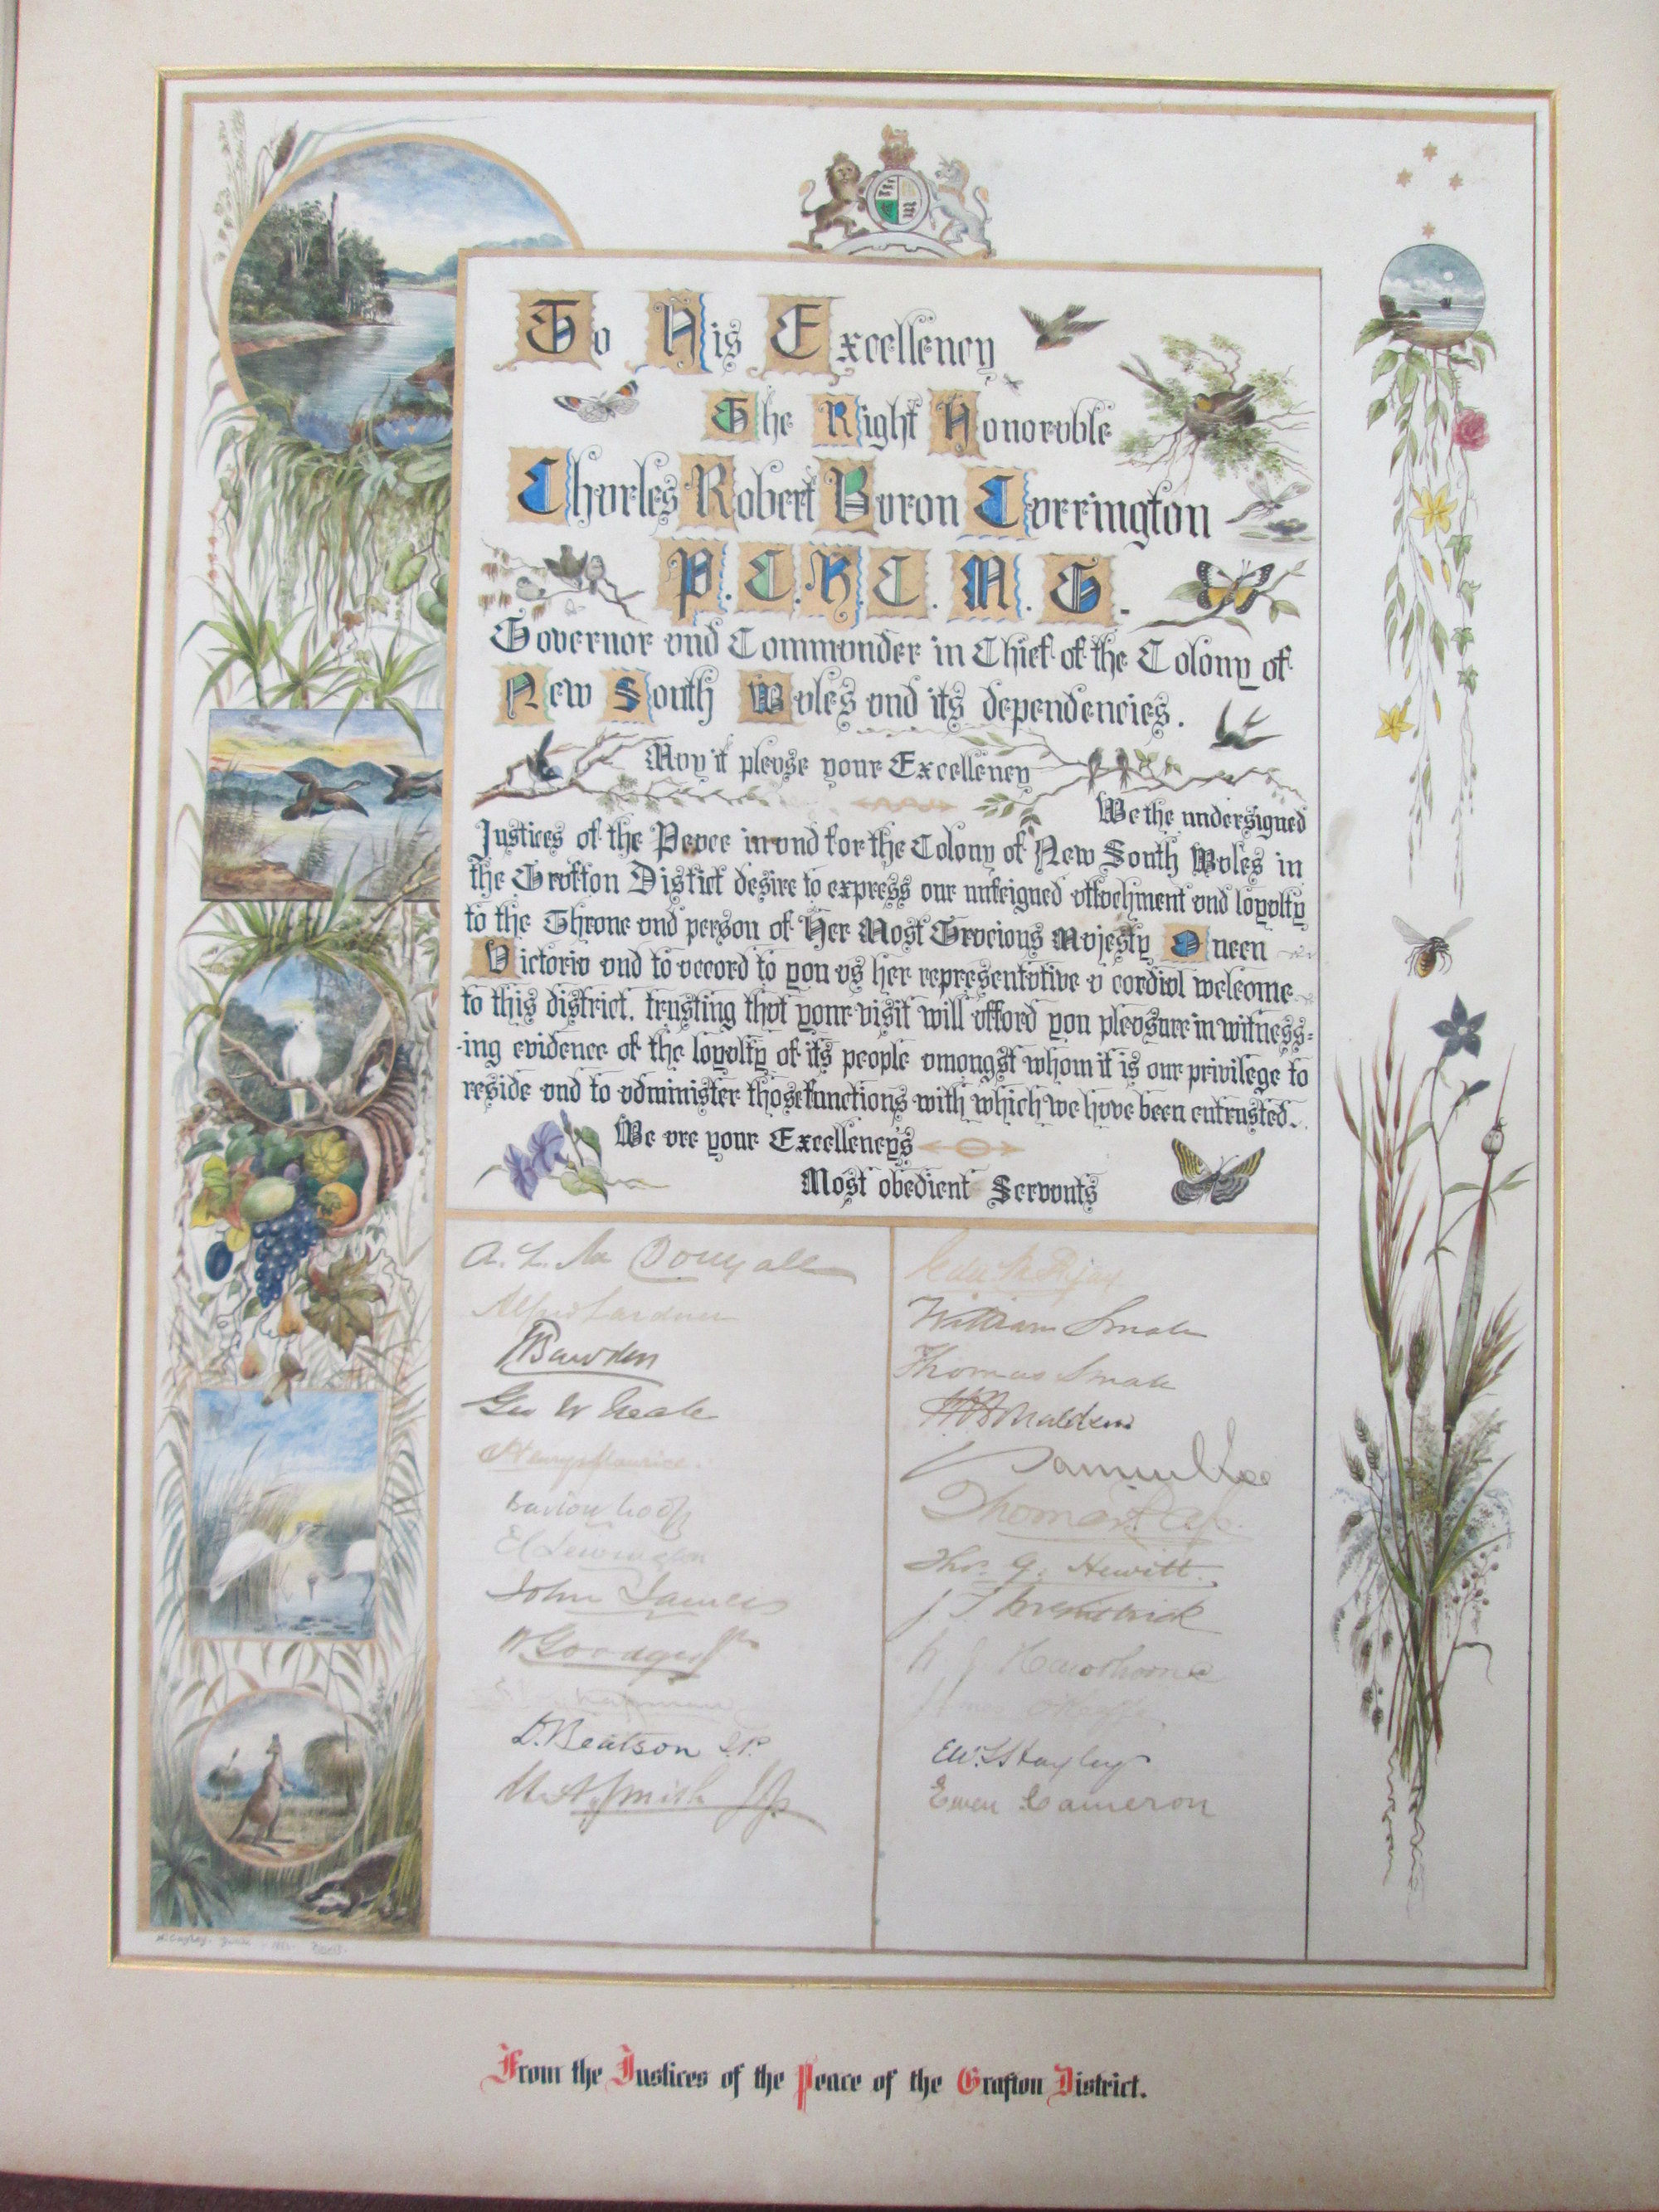 To His Excellency
The Right Honorable
Charles Robert Baron Carrington
P.C.K.C.M.G.
Governor and Commander in Chief of the Colony of
New South Wales and its dependencies.
May it please your Excellency
We the undersigned
Justices of the Peace in and for the Colony of New South Wales in
the Grafton District desire to express our unfeigned attachment and loyalty
to the Throne and person of Her Most Gracious Majesty Queen
Victoria and to accord to you as her representative a cordial welcome
to this district. trusting that your visit will afford you pleasure in witness=
-ing evidence of the loyalty of its people amongst whom it is our privilege to
reside and to administer those functions with which we have been entrusted.
We are your Excellency's
Most obedient Servants
A. L. Mc Dougall
Alfred Lardner
T Bawden
Geo W Neale
Henry Maurice.
John James
D. Beatson J.P.
Smith JP
William Small
Thomas Small
Samuel Lee
Thomas
Thos. G. Hewitt.
Hawthorne
Ewen Cameron
From the Justices of the Peace of the Grafton District.